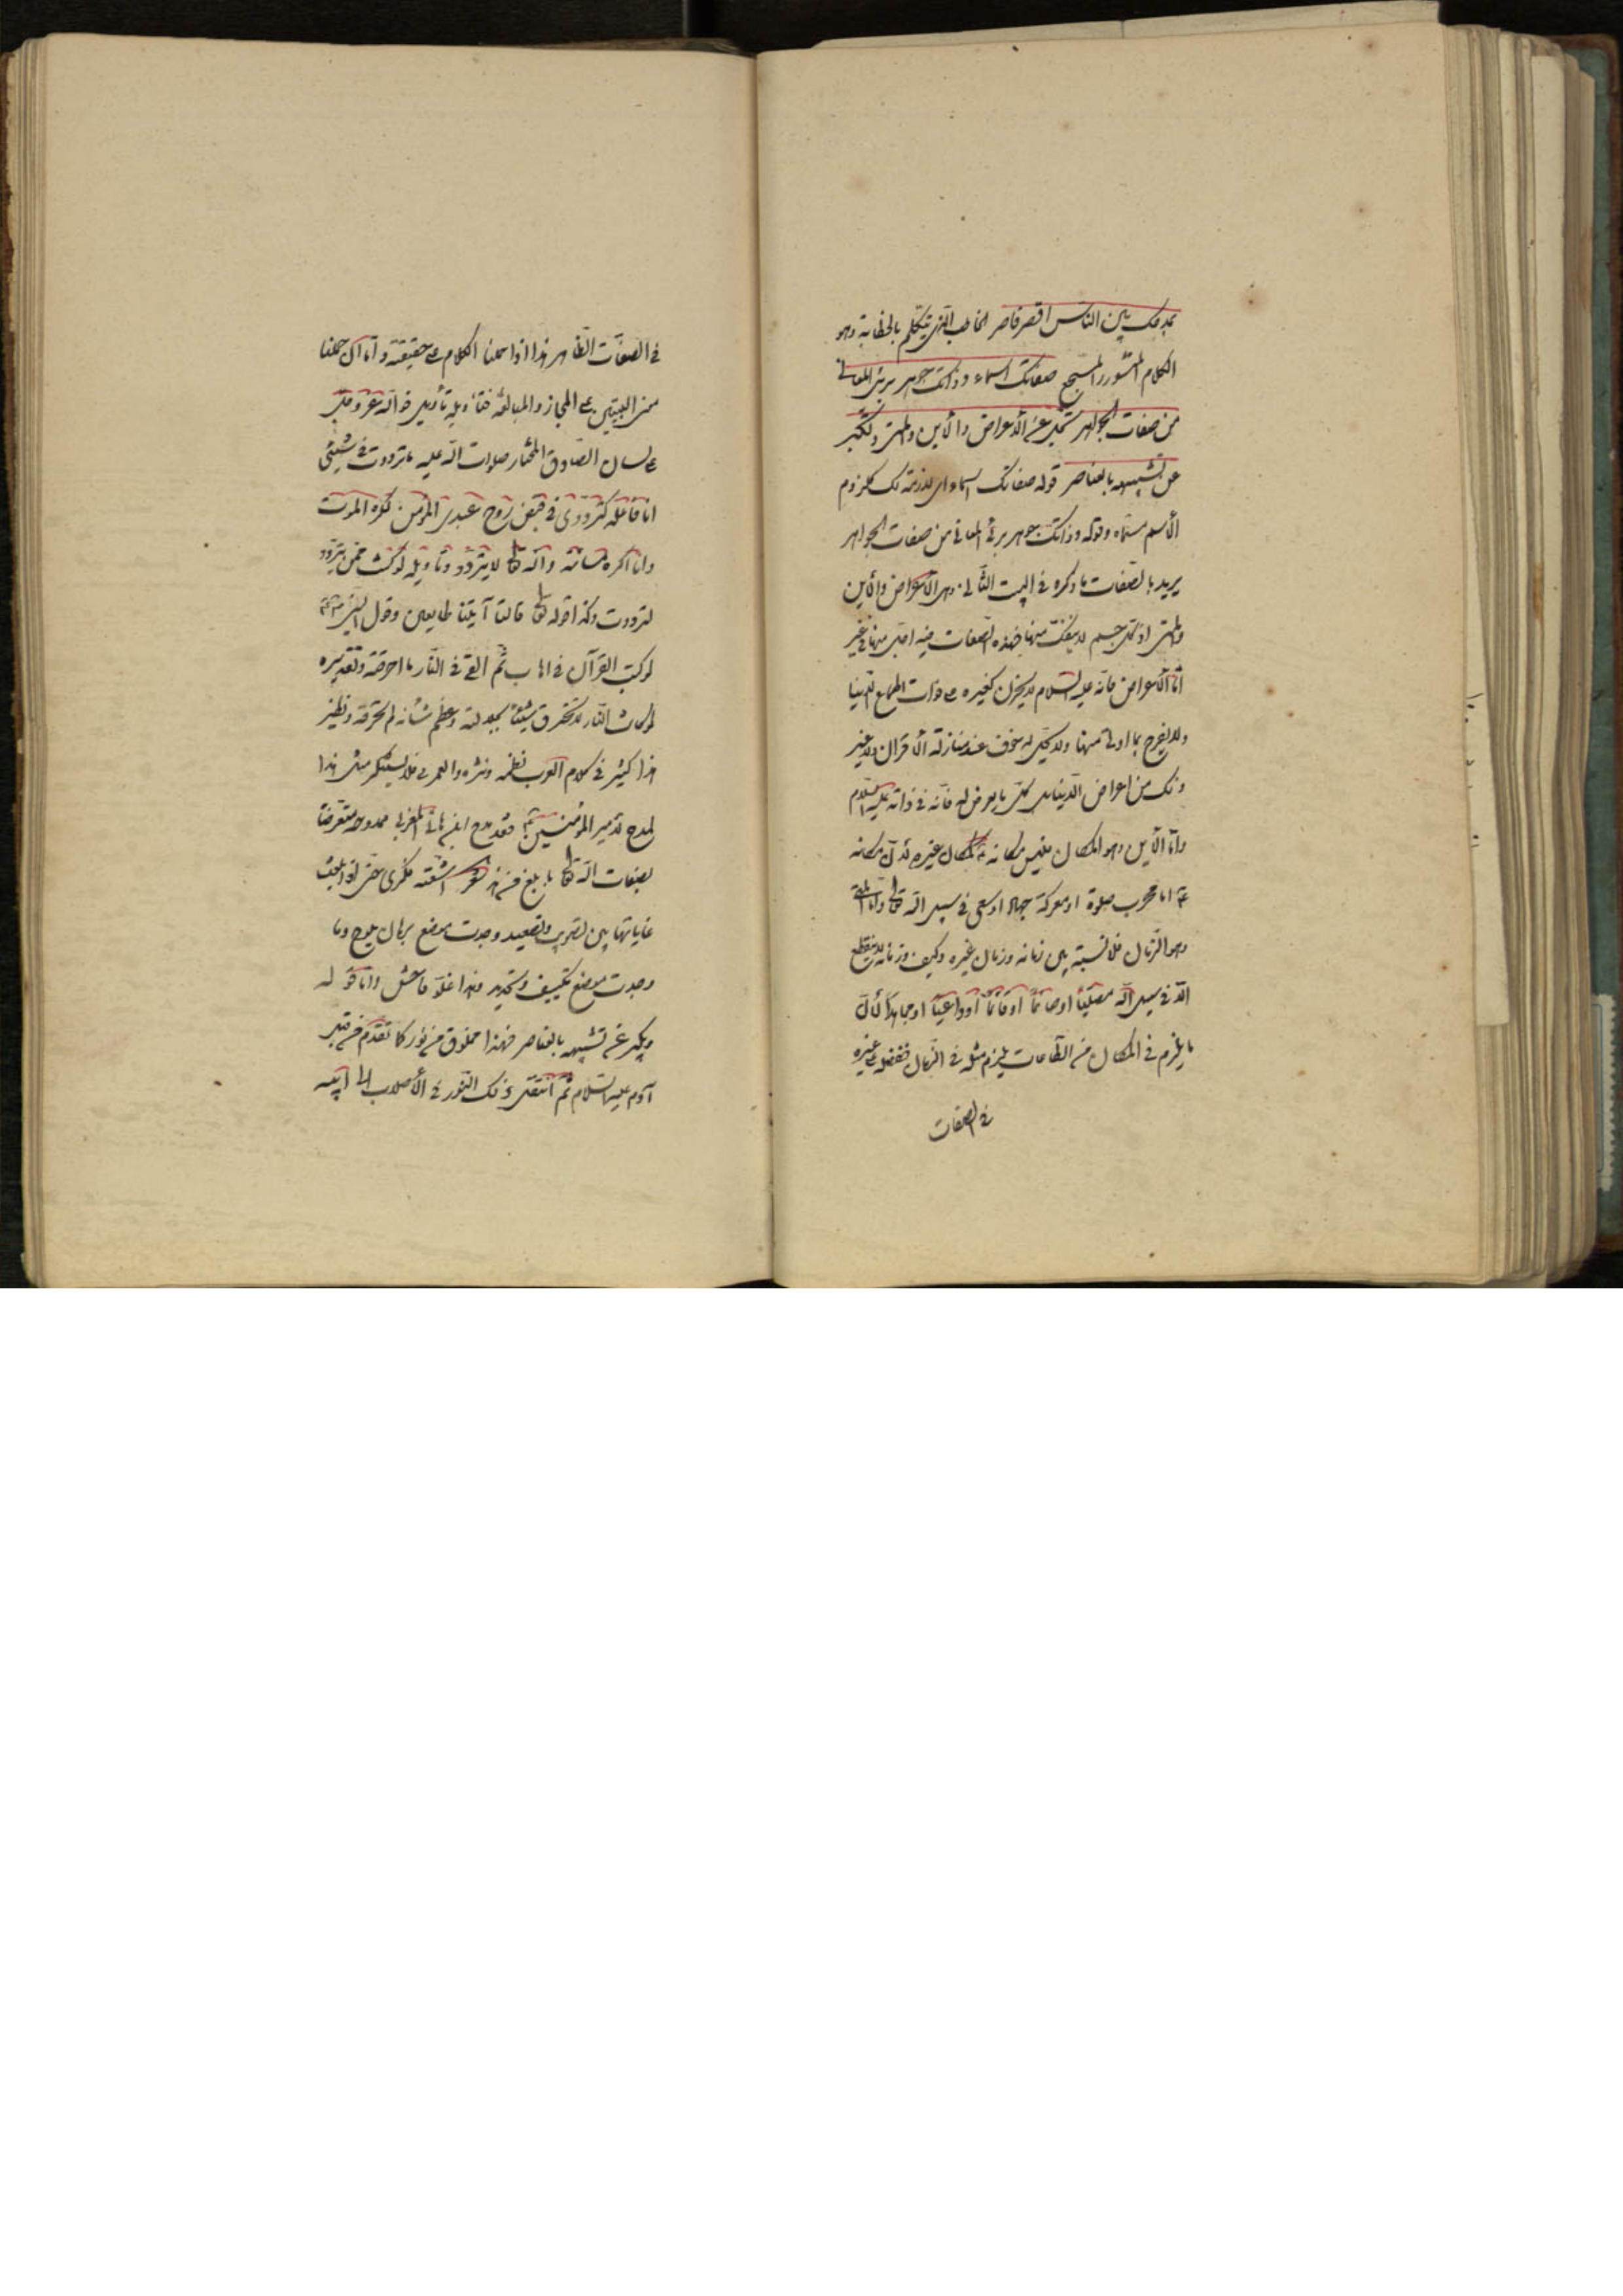 بمدحك بين الناس اقصر قاصر الخاطب الذي يتكلم بالخطابة وهو
الكلام المنثور المسجع صفاتك اسماء وذاتك جوهر برئ المعاني
من صفات الجواهر يجل عن الأعراض والأين والمتى ويكبر
عن تشبيهه بالعناصر قوله صفاتك اسماء اى لازمة لك كلزوم
الأسم مسماه وقوله وذاتك جوهر برئ المعاني من صفات الجواهر
يريد بالصفات ما ذكره في البيت الثاني وهى الأعراض والأين
والمتى اذ كل جسم لا ينفك منها فهذه الصفات فيه اجل منها في غير
اما الأعراض فانه عليه السلام لا يحزن كغيره على فوات اطماع الدنيا
ولا يفرح بما اوتى منها ولا يحل به خوف عند منازلة الأقران ولا غير
ذلك من اعراض الدنيا بل كل ما يعرض له فانه في ذاته عليه السلام
واما الأين وهو المكان فليس مكانه كمكان غيره لأن مكانه
اما محراب صلوة او معركة جهاد او سعى في سبيل الله تعالى واما المتى
وهو الزمان فلا نسبة بين زمانه وزمان غيره وكيف وزمانه لا ينقطع
الا في سبيل الله مصليا او صائما او قائما او داعيا او مجاهدا لأن
ما يلزم في المكان من الطاعات يلزم مثله في الزمان ففضله على غيره
في الصفات
في الصفات الظاهر هذا اذا حملنا الكلام على حقيقته واما ان حملنا
معنى البيتين على المجاز والمبالغة فتأويله تأويل قوله عز وجل
على لسان الصادق المختار صلوات الله عليه ما ترددت في شيئ
انا فاعله كترددى في قبض روح عبدى المؤمن يكره الموت
وانا اكره مسائته والله تعالى لا يتردد وتأويله لو كنت ممن يتردد
لترددت وكذا قوله تعالى قالتا آتينا طايعين وقول النبي
لو كتب القرآن في اهاب ثم القى في النار ما احرقته وتقديره
لو كانت النار لا تحرق شيئا بجلالته وعظم شأنه لم تحرقه ونظير
هذا كثير في كلام العرب نظمه ونثره والعمرى فلا يستنكر مثل هذا
لمدح لأمير المؤمنين فقد مدح ابن هانى المغربى ممدوحه متعرضا
بصفات الله تعالى بابلغ من هذا شعر اتبعته فكرى حتى اذا بلغت
غاياتها بين تصويب وتصعيد وجدت موضع برهان يلوح وما
وجدت موضع تكييف وتحديد وهذا غلو فاحش واما قوله
ويكبر عن تشبيهه بالعناصر فهذا مخلوق من نور كما تقدم من قبل
آدم عليه السلام ثم انتقل ذلك النور في الأصلاب الى ابيه